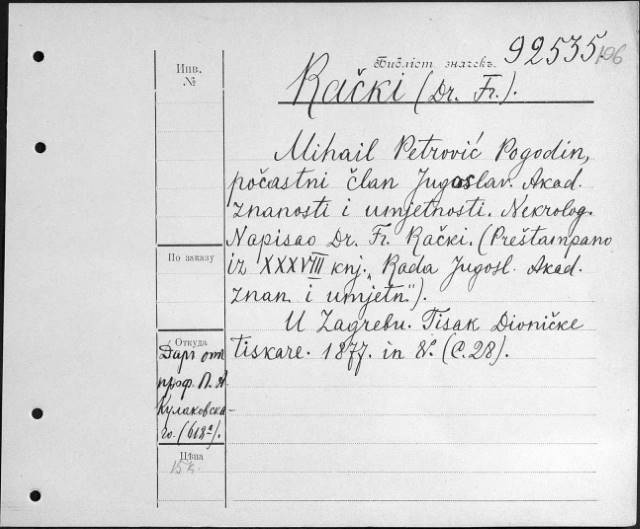 Библіот. значекъ. 92535
106
Инв.
№
Rački (Dr. Fr.).
Mihail Petrović Pogodin,
počastni član Jugoslav. Akad.
znanosti i umjetnosti. Nekrolog.
Napisao Dr. Fr. Rački. (Preštampano
iz XXXVIII knj. „Rada Jugosl. Akad.
znan. i umjetn.").
U Zagrebu. Tisak Dioničke
tiskare. 1877. in 8°. (C. 28).
По заказу
Откуда
Даръ отъ
проф. П. А.
Кулаковска-
го. (618ª).
Цѣна
15 к.